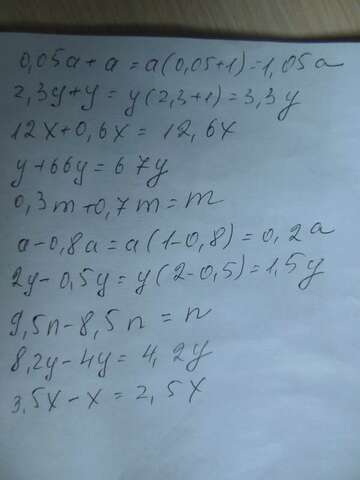 0,05a+a=a(0,05+1)=1,05a
2,3y+y=y(2,3+1)=3,3y
12x+0,6x=12,6x
y+66y=67y
0,3m+0,7m=m
a-0,8a=a(1-0,8)=0,2a
2y-0,5y=y(2-0,5)=1,5y
9,5n-8,5n=n
8,2y-4y=4,2y
3,5x-x=2,5x